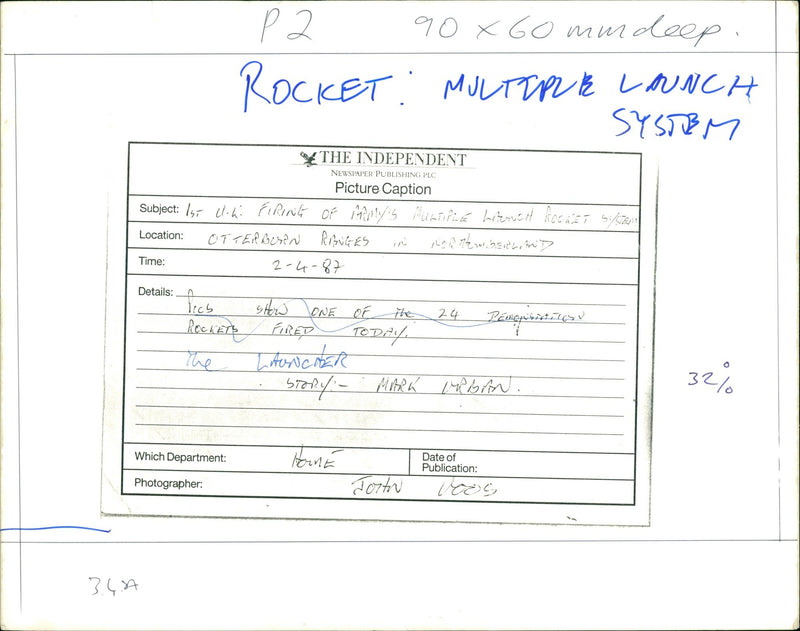 P2 90 x 60 mm deep.
ROCKET: MULTIPLE LAUNCH
SYSTEM
THE INDEPENDENT
NEWSPAPER PUBLISHING PLC
Picture Caption
Subject: 1ST U.K. FIRING OF ARMY'S MULTIPLE LAUNCH ROCKET SYSTEM
Location: OTTERBURN RANGES IN NORTHUMBERLAND
Time: 2-4-87
Details:
PICS SHOW ONE OF THE 24 DEMONSTRATION
ROCKETS FIRED TODAY.
The LAUNCHER
STORY - MARK URBAN.
32%
Which Department: HOME
Date of
Publication:
Photographer: JOHN VOOS